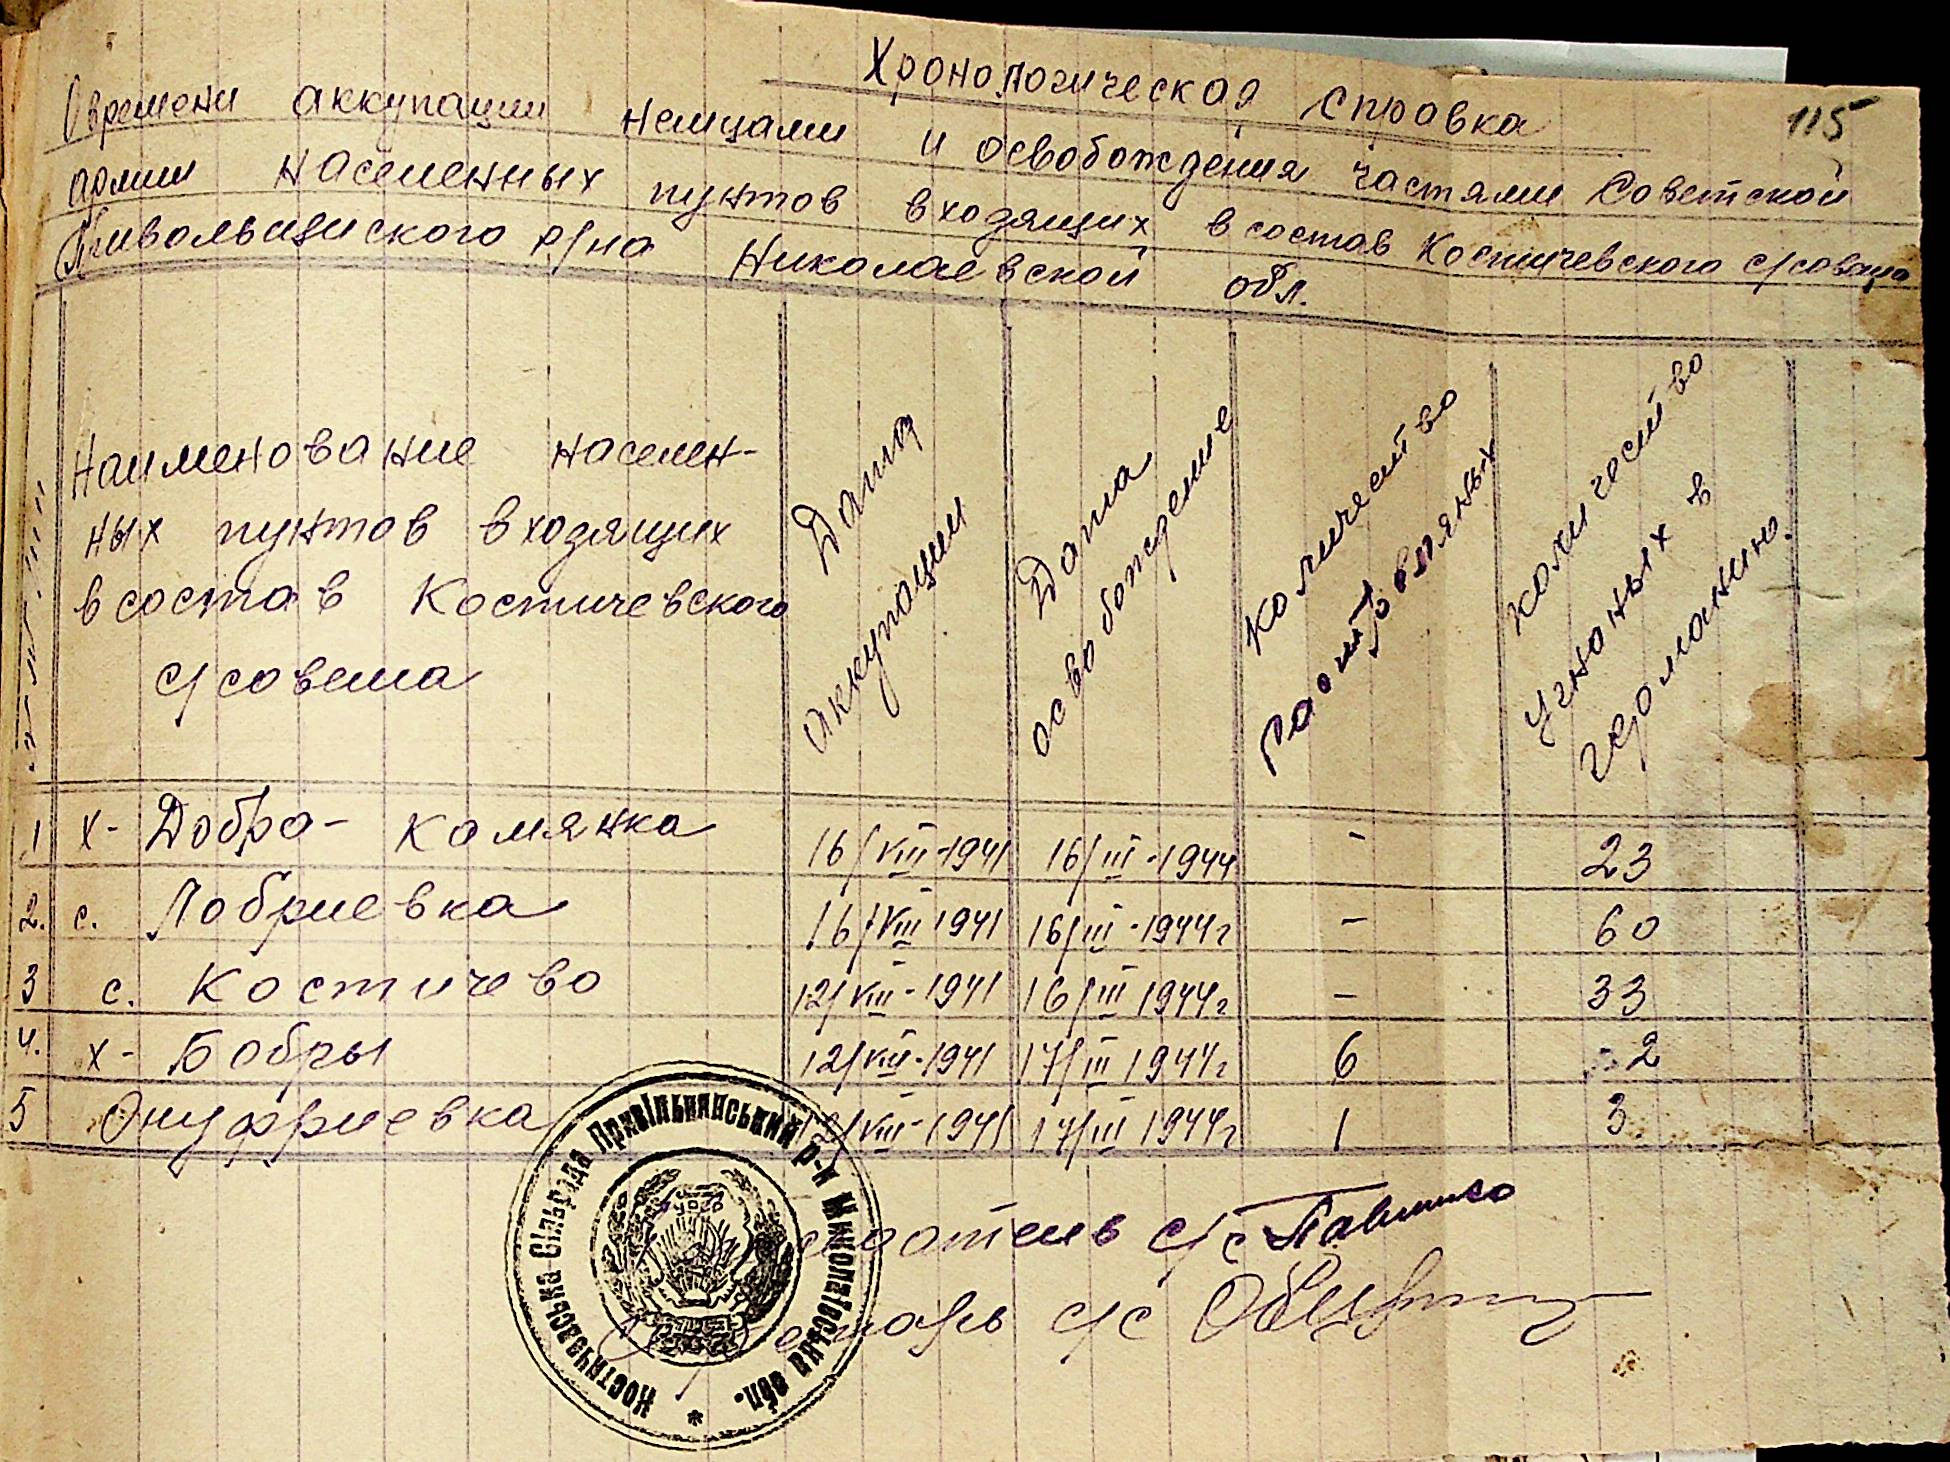 Хронологическая справка
115
О времени аккупации немцами и освобождения частями Советской
армии населенных пунктов входящих в состав Костичевского с/совета
Привольнянского р/на Николаевской обл.
Наименование населен-
ных пунктов входящих
в состав Костичевского
с/совета
Дата
аккупации
Дата
освобождение
количество
расстрелянных
количество
угнаных в
германию.
1 х- Добра- Камянка 16/VIII-1941 16/III-1944 - 23
2. с. Лобриевка 16/VIII 1941 16/III-1944г - 60
3 с. Костичево 12/VIII-1941 16/III 1944г - 33
4. х- Бобры 12/VIII-1941 17/III 1944г 6 2
5 Онуфриевка 12/VIII-1941 17/III 1944г 1 3.
Председатель с/с
Секретарь с/с
Костичівська Сільрада Привільнянський р-н Миколаївська обл.
УСРР